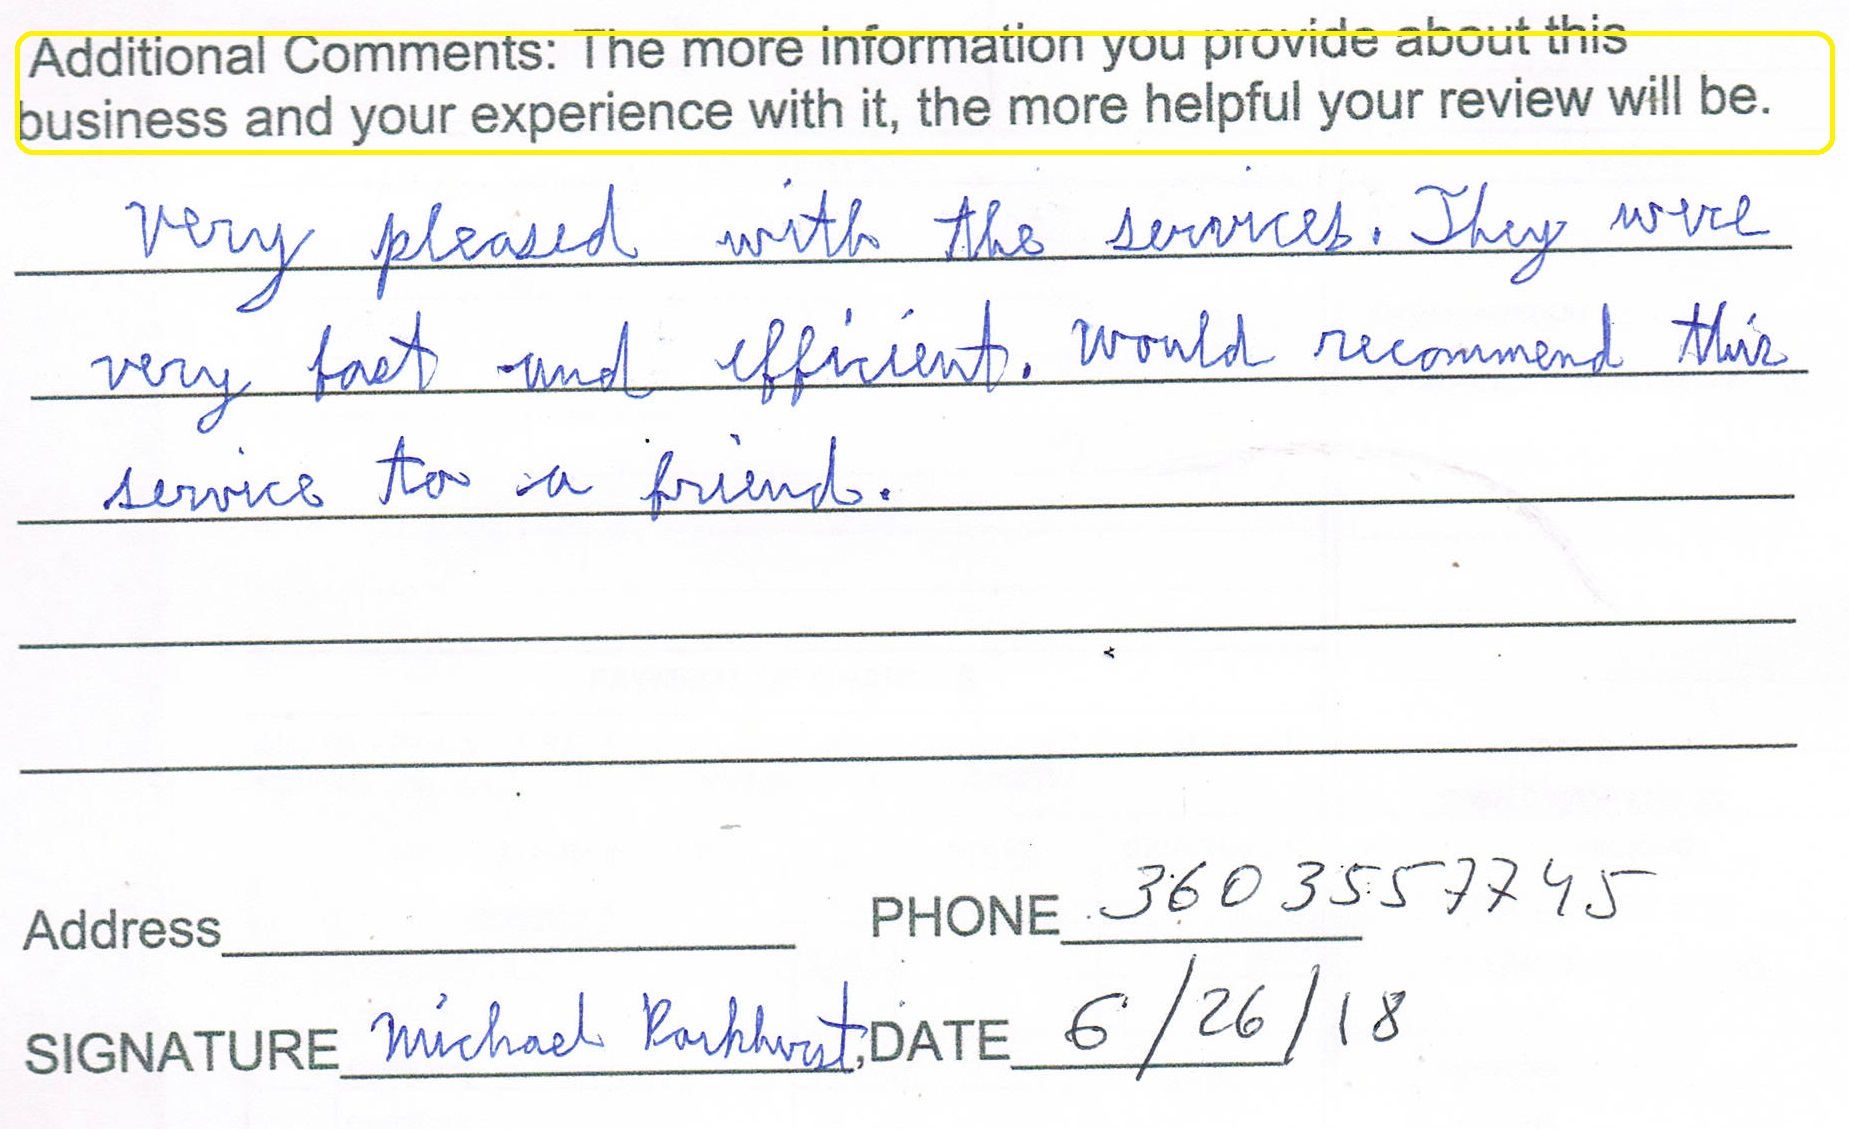 Additional Comments: The more information you provide about this
business and your experience with it, the more helpful your review will be.
Very pleased with the services. They were
very fast and efficient. Would recommend this
service to a friend.
Address PHONE 360 355 7745
SIGNATURE Michael Parkhurst, DATE 6/26/18